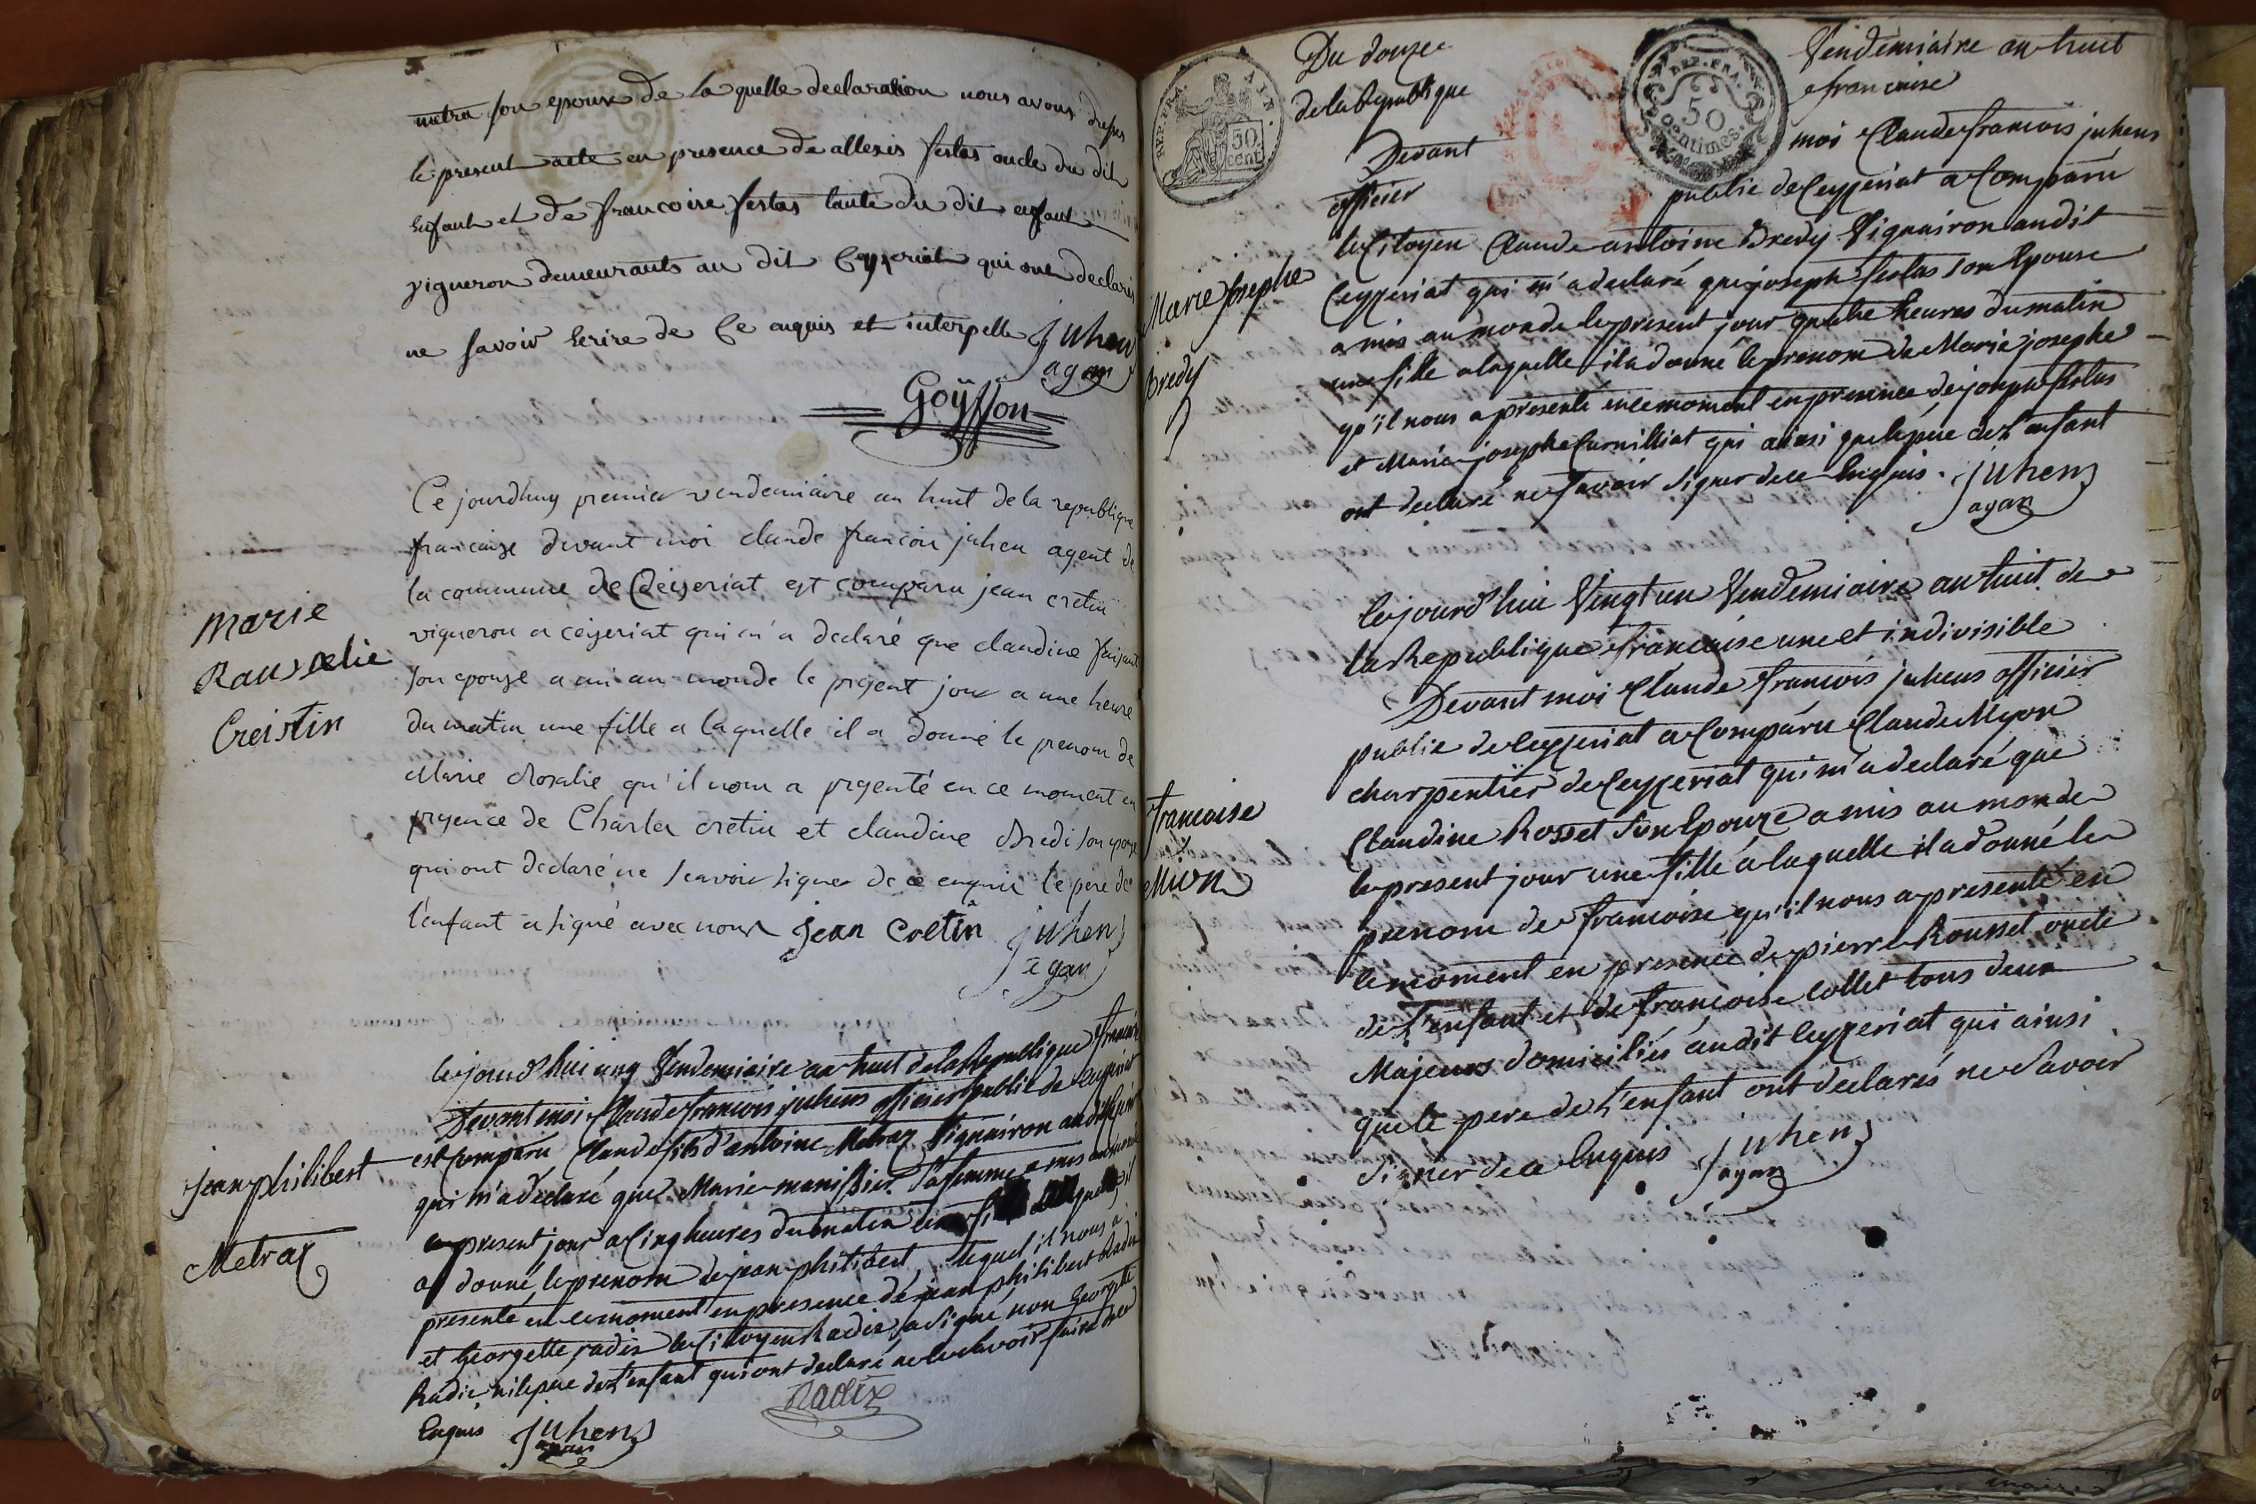 metra son epouse de la quelle declaration nous avons dressés
le present acte en presence de allexis festas oncle du dit
Enfant et de francoise festas tante du dit enfant
vigneron demeurants au dit Ceyzeriat qui ont declarés
ne savoir Ecrire de Ce enquis et interpelle juhen
agan
Goÿffon
marie
Rauxalie
Creistin
Ce jourdhuy premier vendemiaire an huit de la republique
francaise devant moi claude francois juhen agent de
la commune de Ceiseriat est comparu jean cretin
vigneron a ceizeriat qui m'a declaré que claudine
son epouse a mi au monde le present jour a une heure
du matin une fille a laquelle il a donné le prenom de
Marie Rosalie qu'il nous a presenté en ce moment en
presence de Charles cretin et claudine Bredi son epouse
qui ont declaré ne scavoir signer de ce enquis le pere de
l'enfant a signé avec nous jean cretin juhen
agan
jean philibert
Metraz
Cejourd'hui cinq Vendemiaire an huit de la Republique francaise
Devant moi Claude francois juhens officier public de Ceyzeriat
est Comparu Claude fils d'antoine Metraz Vignairon audit
qui m'a declaré que Marie manissier Sa femme a mis au monde
present jour a Cinq heures du matin
a donné le prenom de jean philibert, lequel il nous a
presenté en ce moment en presence de jean philibert Radix
et Georgette radix le Citoyen Radix a signé non Georgette
Radix ni le pere de L'enfant qui ont declaré ne le Savoir faire de ce
Enquis juhen
agan
Radix
REP. FRA.
50
cent.
REP. FRA.
50
Centimes.
Du douze Vendemiaire an huit
de la Republique francaise
Devant moi Claude francois juhens
officier public de Ceyzeriat a Comparu
le Citoyen Claude antoine Bredy Vignairon audit
Ceyzeriat qui m'a declaré que joseph festas son Epouse
a mis au monde le present jour quatre heures du matin
une fille a laquelle il a donné le prenom de Marie josephe
qu'il nous a presenté en ce moment en presence de joseph festas
et Marie josephe Curnilliat qui ainsi que le pere de L'enfant
ont declaré ne Savoir signer de ce Enquis. juhen
agan
Marie josephe
Bredy
Cejourd'hui Vingt un Vendemiaire an huit de
la Republique francaise une et indivisible
Devant moi Claude francois juhens officier
public de Ceyzeriat a Comparu Claude Myon
charpentier de Ceyzeriat qui m'a declaré que
Claudine Rosset Son Epouze a mis au monde
le present jour une fille á laquelle il a donné le
prenom de francoise qu'il nous a presenté en
ce moment en presence de pierre Rousset oncle
de L'enfant et de francoise Collet tous deux
Majeurs domiciliés audit Ceyzeriat qui ainsi
que le pere de L'enfant ont declarés ne Savoir
signer de ce Enquis juhen
agan
francoise
Mion